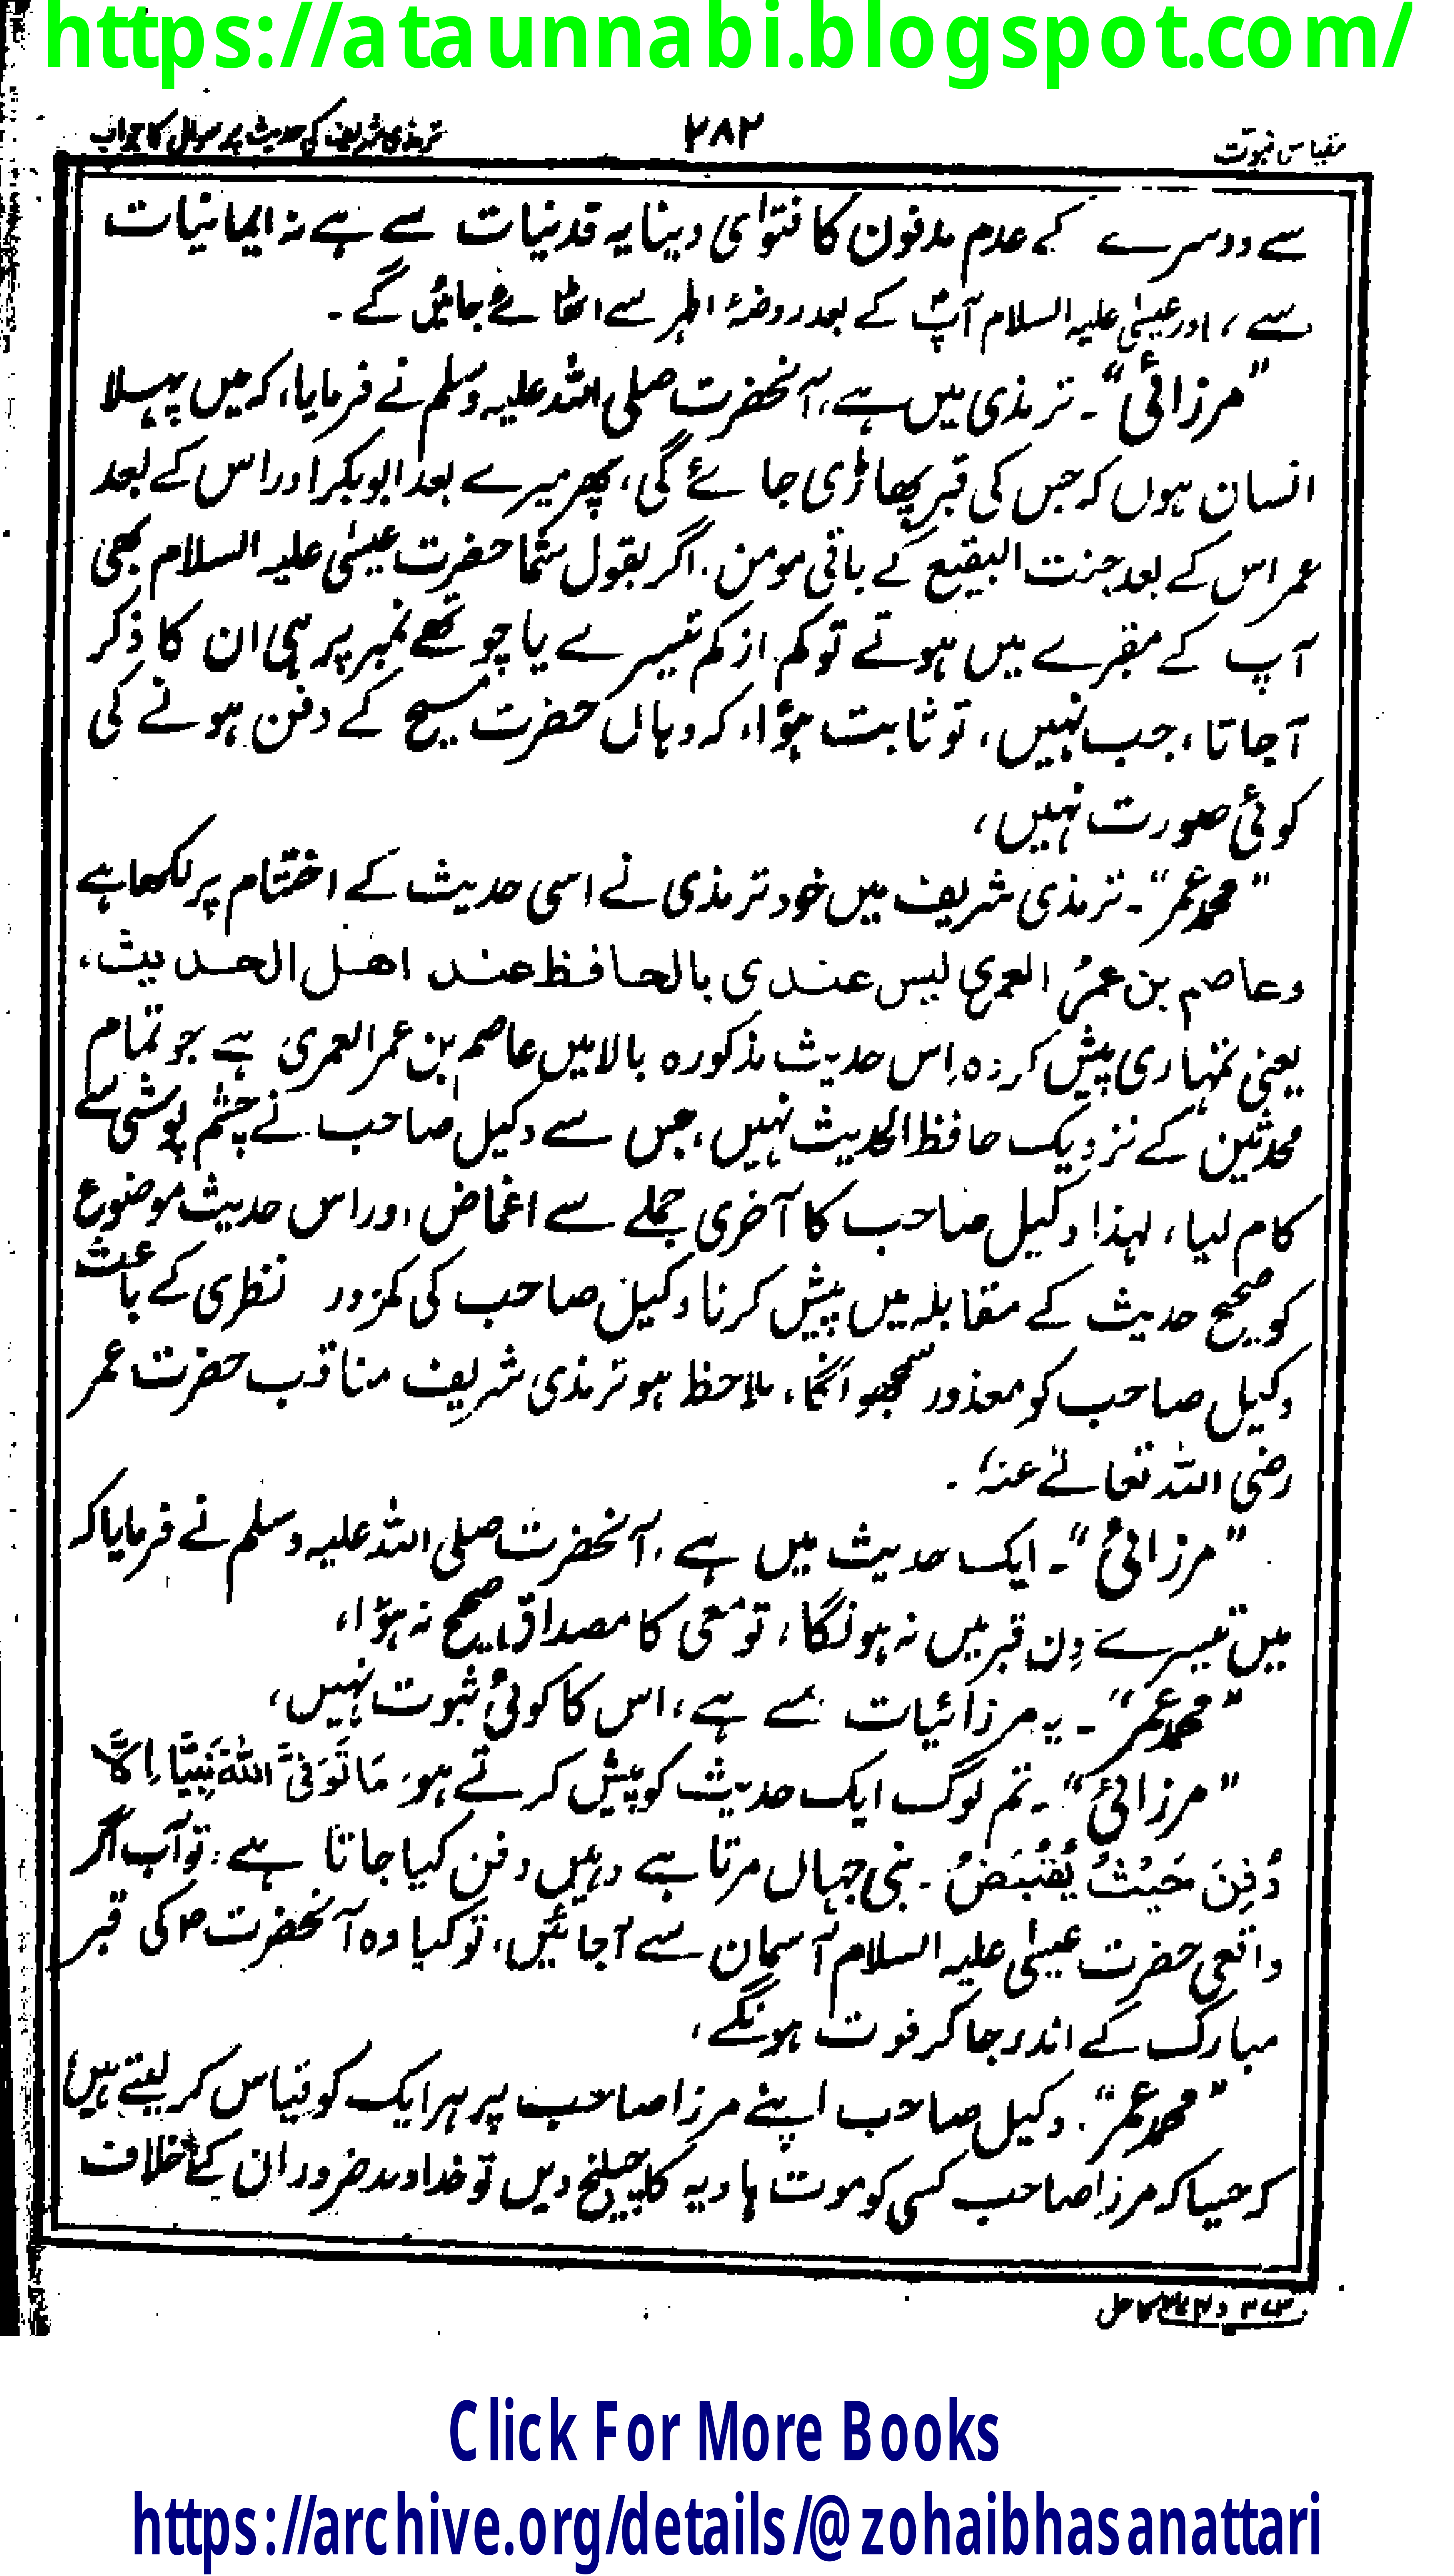 https://ataunnabi.blogspot.com/
مقیاس نبوت
۲۸۲
ترمذی شریف کی حدیث پر سوال کا جواب
سے دوسرے کے عدم مدفون کا فتوٰی دینا یہ قدنیات سے ہے نہ ایمانیات
سے، اور عیسٰی علیہ السلام آپؐ کے بعد روضۂ اطہر سے اٹھائے جائیں گے۔
”مرزائی“۔ ترمذی میں ہے، آنحضرت صلی اللہ علیہ وسلم نے فرمایا، کہ میں پہلا
انسان ہوں کہ جس کی قبر پھاڑی جائے گی، پھر میرے بعد ابوبکر اور اس کے بعد
عمر اس کے بعد جنت البقیع کے باقی مومن۔ اگر بقول شما حضرت عیسٰی علیہ السلام بھی
آپ کے مقبرے میں ہوتے تو کم از کم تیسرے یا چوتھے نمبر پر ہی ان کا ذکر
آجاتا، جب نہیں، تو ثابت ہؤا، کہ وہاں حضرت مسیح کے دفن ہونے کی
کوئی صورت نہیں،
”محمد عمر“۔ ترمذی شریف میں خود ترمذی نے اسی حدیث کے اختتام پر لکھا ہے
وعاصم بن عمرُ العمری لیس عندی بالحافظ عند اھل الحدیث،
یعنی تمہاری پیش کردہ اِس حدیث مذکورہ بالا میں عاصم بن عمر العمری ہے جو تمام
محدثین کے نزدیک حافظ الحدیث نہیں، جس سے وکیل صاحب نے چشم پوشی سے
کام لیا، لہذا وکیل صاحب کا آخری جملے سے اغماض اور اس حدیث موضوع
کو صحیح حدیث کے مقابلہ میں پیش کرنا وکیل صاحب کی کمزور نظری کے باعث
وکیل صاحب کو معذور سمجھو انگا، ملاحظ ہو ترمذی شریف مناقب حضرت عمر
رضی اللہ تعالےٰ عنہٗ۔
”مرزائی“۔ ایک حدیث میں ہے، آنحضرت صلی اللہ علیہ وسلم نے فرمایا کہ
میں تیسرے دِن قبر میں نہ ہونگا، تو معی کا مصداق صحیح نہ ہؤا،
”محمد عمر“۔ یہ مرزائیات سے ہے، اس کا کوئی ثبوت نہیں،
”مرزائی“۔ تم لوگ ایک حدیث کو پیش کرتے ہو، مَا تَوَفَّی اللہُ نَبِیًّا اِلَّا
دُفِنَ حَیْثُ یُقْبَضُ۔ نبی جہاں مرتا ہے وہیں دفن کیا جاتا ہے، تو آب اگر
واقعی حضرت عیسٰی علیہ السلام آسمان سے آجائیں، تو کیا وہ آنحضرت ؐ کی قبر
مبارک کے اندر جا کر فوت ہونگے،
”محمد عمر“۔ وکیل صاحب اپنے مرزا صاحب پر ہر ایک کو قیاس کر لیتے ہیں
کہ جیسا کہ مرزا صاحب کسی کو موت ہاویہ کا چیلنج دیں تو خداوند ضرور ان کے خلاف
Click For More Books
https://archive.org/details/@zohaibhasanattari